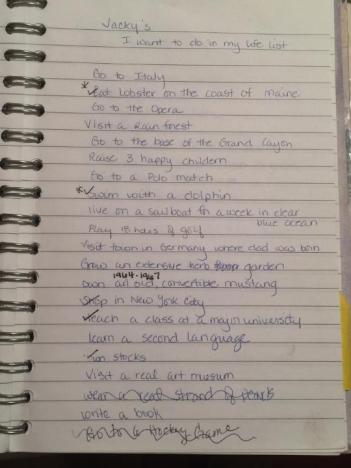 Jacky's
I want to do in my life list
Go to Italy
Eat lobster on the coast of maine
Go to the Opera
Visit a Rain forest
Go to the base of the Grand Canyon
Raise 3 happy childern
Go to a Polo match
Swim with a dolphin
live on a sailboat for a week in clear
blue ocean
Play 18 holes of golf
Visit town in Germany where dad was born
Grow an extensive herb garden
1964-1967
own an old, convertible mustang
Shop in New York City
Teach a class at a major university
learn a second language
stocks
Visit a real art musum
wear a real strand of pearls
write a book
Go to a Hockey Game